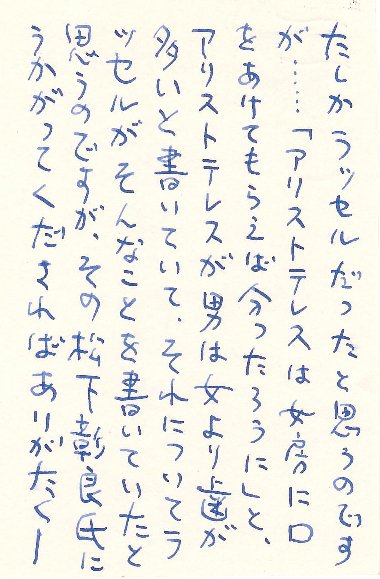 たしかラッセルだったと思うのです
が……「アリストテレスは女房に口
をあけてもらえば分ったろうに」と、
アリストテレスが男は女より歯が
多いと書いていて、それについてラ
ッセルがそんなことを書いていたと
思うのですが、その松下彰良氏に
うかがってくださればありがたく—